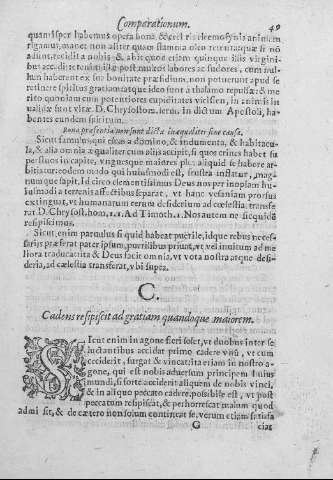 Comparationum. 49
quamsper habemus opera bona, & &
rigamus, manet non aliter quam flamma oleo
adsunt, recedit a nobis & abit quoque etiam quinque illis virgini-
bus accidit tennimis post multos labores ac sudores, cum nul-
lum haberent ex sui bonitate præsidium, non potuerunt apud se
retinere spiritus gratiam atque ideo sunt à thalamo repulsæ: & me
rito quoniam cum potentiores cupiditates vicissent, in animi in
ualisse sunt victæ. D. Chrysostom. serm. in dictum Apostoli, ha-
bentes eundem spiritum.
Bona præsentia non sunt dicta inæqualiter sine causa.
Sicut famulus qui escam a domino, & indumenta, & habitacu-
la, & alia omnia æqualiter cum alijs accipit, si quo crines habet su
perfluos in capite, vnguesque maiores plus aliquid se habere ar-
bitratur: eodem modo qui huiusmodi est, frustra inflatur, mag-
numque sapit. Id circo clementissimus Deus nos per inopiam hu-
iusmodi a terrenis affectibus separat, vt hanc vesaniam prorsus
extinguat, vt humanarum rerum desiderium ad cœlestia transfe
rat. D. Chrysost. hom. 11. Ad Timoth. 1. Nos autem ne sic quidē
respiscimus.
Sicut enim patulus si quid habeat puerile, idque rebus neces-
sarijs præferat pater ipsum puerilibus priuat, vt vel inuitum ad me
liora traducat ita & Deus facit omnia, vt vota nostra atque desi-
deria, ad cœlestia transferat, vbi supra.
C.
Cadens respiscit ad gratiam quandoque maiorem.
Sicut enim in agone fieri solet, vt duobus inter se
luctantibus accidat primo cadere vnū, vt cum
ceciderit, surgat & vincat: ita etiam in nostro a-
gone, qui est nobis aduersum principem huius
mundi, si forte acciderit aliquem de nobis vinci,
& in aliquo peccato cadere, possibile est, vt post
peccatum respiscat, & perhorrescat malum quod
admisit, & de cætero non solum contineat se, verum etiam satisfa
G ciat